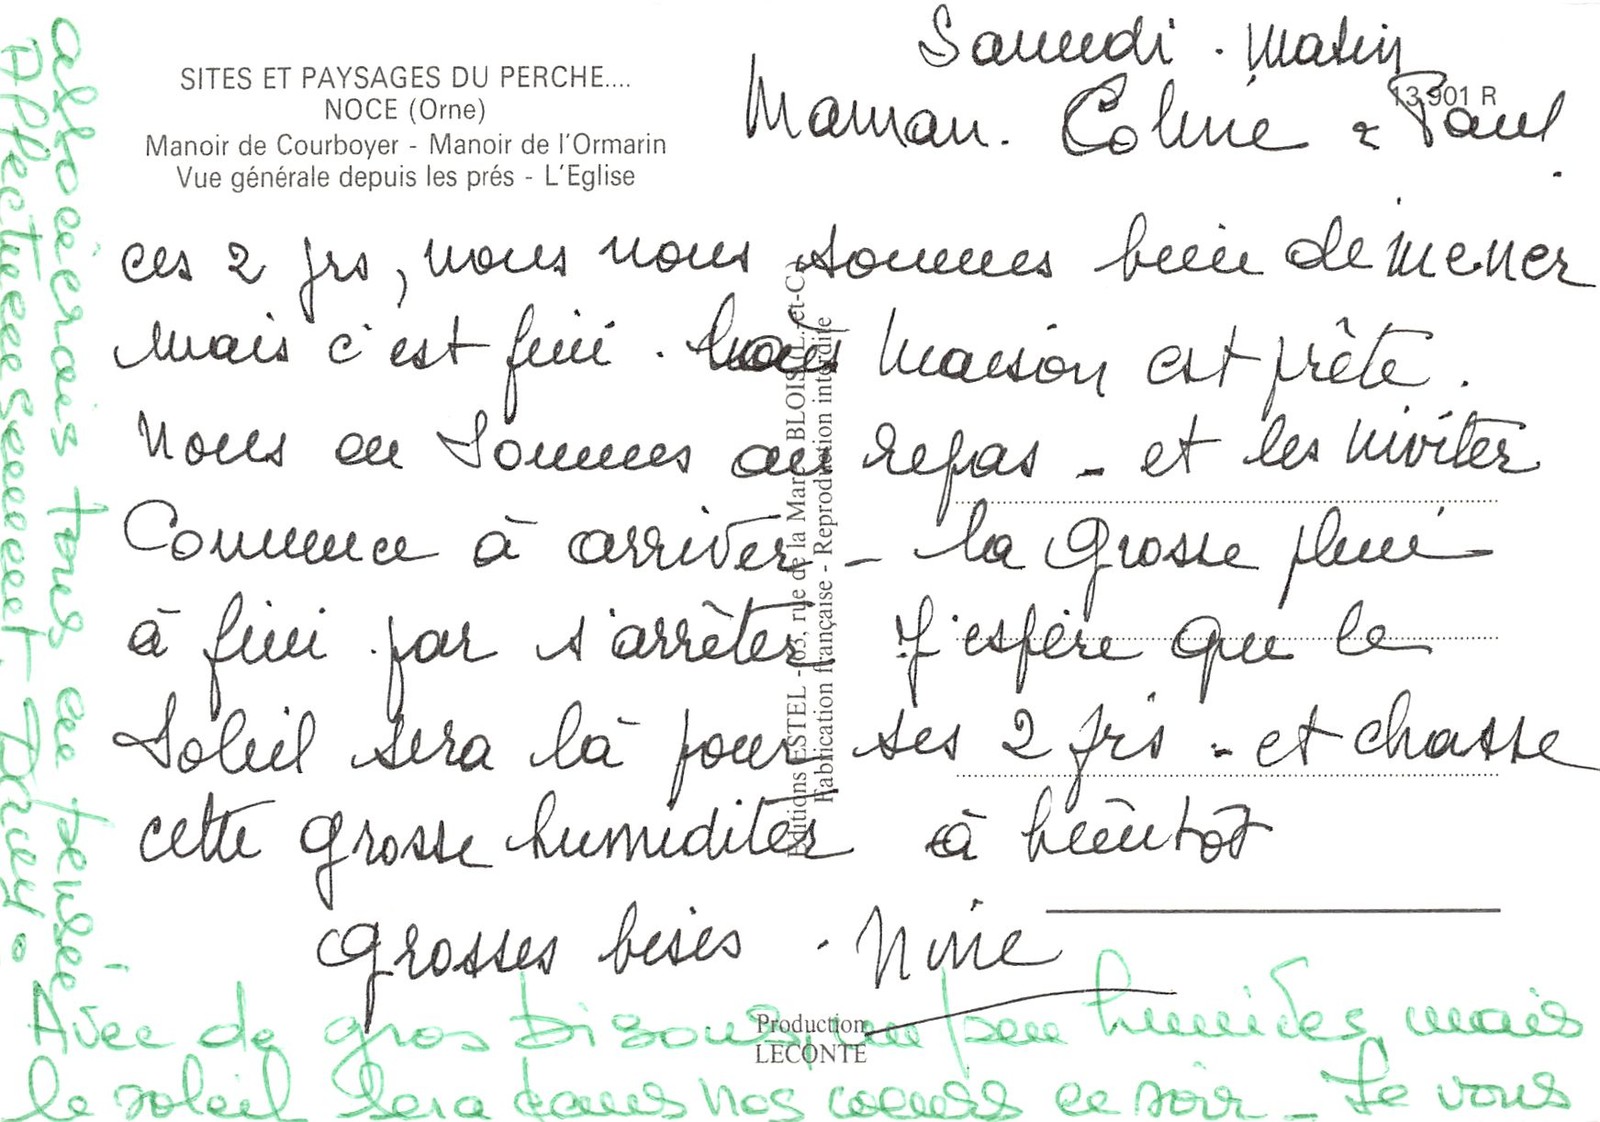 SITES ET PAYSAGES DU PERCHE....
NOCE (Orne)
Manoir de Courboyer - Manoir de l'Ormarin
Vue générale depuis les prés - L'Eglise
13.901 R
Samedi . Matin
Maman. Coline & Paul.
ces 2 jrs, nous nous sommes bien démener
mais c'est fini . Maison est prête.
Nous en sommes au repas - et les inviter
Commence à arriver - la grosse pluie
à fini par s'arrêter. J'espère que le
soleil sera là pour ses 2 jrs - et chasse
cette grosse humiditer à bientôt
Grosses bises . Nine
Editions ESTEL - rue de la Mare BLOIS
Fabrication française - Reproduction interdite
Production
LECONTE
Avec de gros bisous, un peu humides, mais
le soleil sera dans nos coeurs ce soir - Je vous
associerais tous en pensée
Affectueusement.